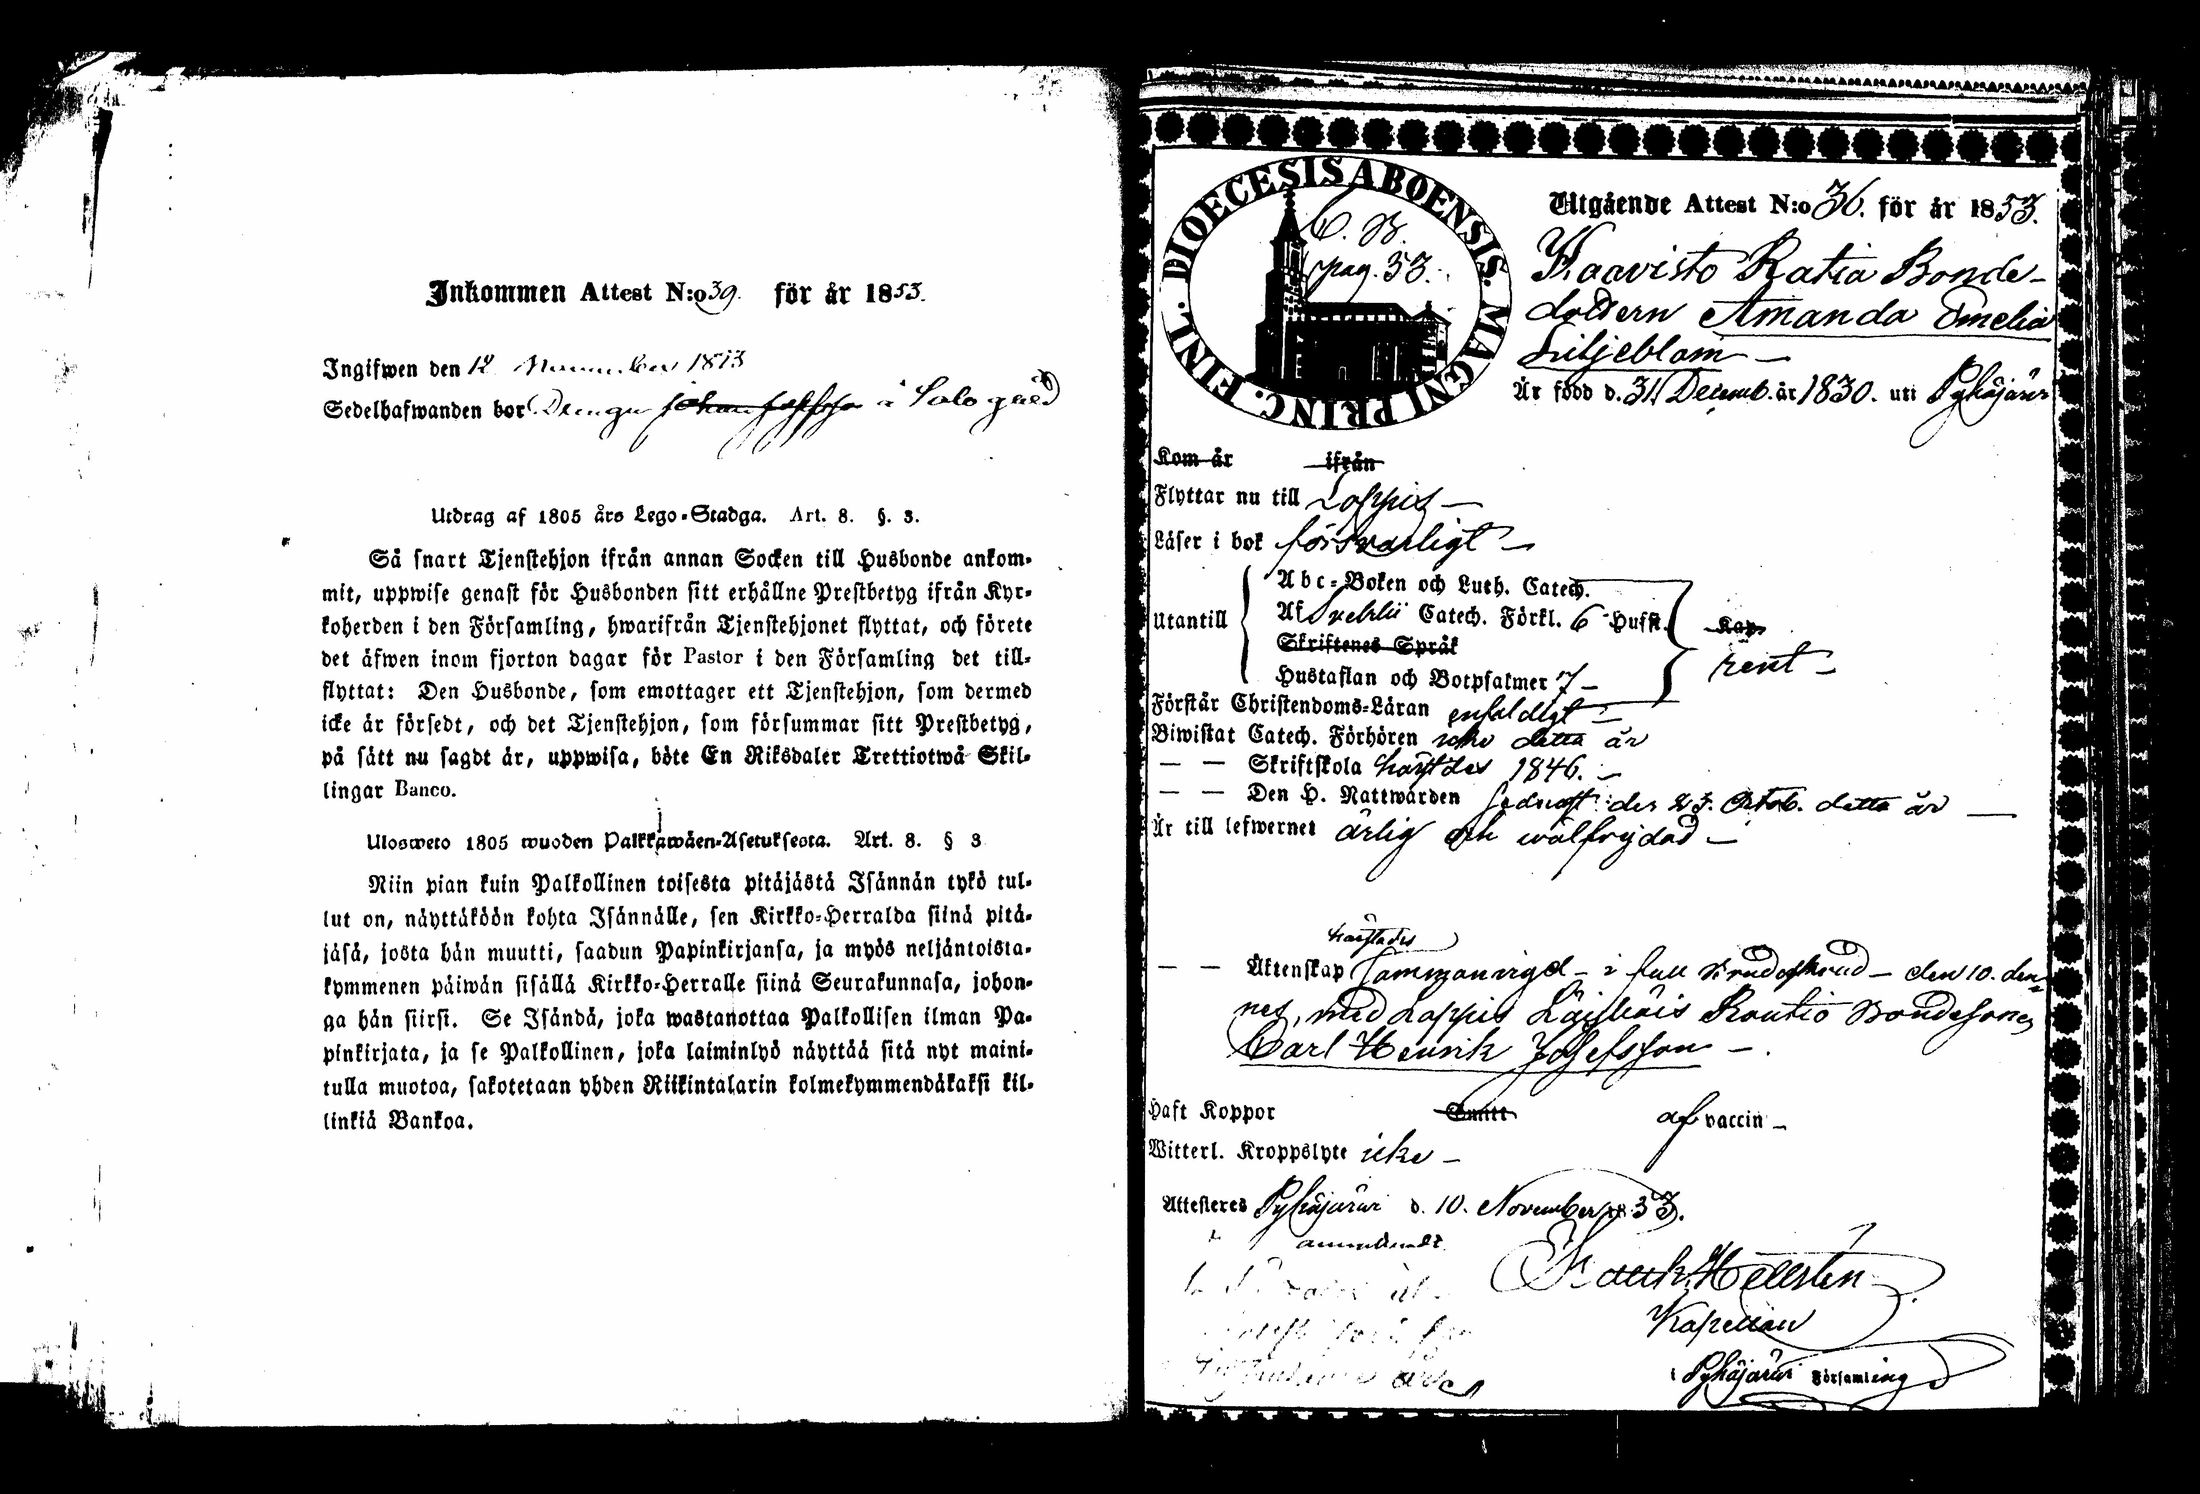 Inkommen Attest N:o 39. för år 1853.
Ingifwen den 12 November 1853
Sedelhafwanden bor Drengn Johan Josefsson i Salo gård
Utdrag af 1805 års Lego-Stadga. Art. 8. §. 3.
Så snart Tjenstehjon ifrån annan Socken till Husbonde ankom-
mit, uppwise genast för Husbonden sitt erhållne Prestbetyg ifrån Kyr-
koherden i den Församling, hwarifrån Tjenstehjonet flyttat, och förete
det äfwen inom fjorton dagar för Pastor i den Församling det till-
flyttat: Den Husbonde, som emottager ett Tjenstehjon, som dermed
icke är försedt, och det Tjenstehjon, som försummar sitt Prestbetyg,
på sätt nu sagdt är, uppwisa, böte En Riksdaler Trettiotwå Skil-
lingar Banco.
Ulosweto 1805 wuoden Palkkawäen-Asetuksesta. Art. 8. § 3
Niin pian kuin Palkollinen toisesta pitäjästä Isännän tykö tul-
lut on, näyttäköön kohta Isännälle, sen Kirkko-Herralda siinä pitä-
jäsä, josta hän muutti, saadun Papinkirjansa, ja myös neljäntoista-
kymmenen päiwän sisällä Kirkko-Herralle siinä Seurakunnasa, johon-
ga hän siirsi. Se Isändä, joka wastanottaa Palkollisen ilman Pa-
pinkirjata, ja se Palkollinen, joka laiminlyö näyttää sitä nyt maini-
tulla muotoa, sakotetaan yhden Riikintalarin kolmekymmendäkaksi kil-
linkiä Bankoa.
DIOECESIS ABOENSIS. MAGNI PRINC. FINL.
C. B.
pag. 53.
Utgående Attest N:o 36. för år 1853.
Haavisto Ratia Bonde-
dottern Amanda Emelia
Liljeblom
Är född d. 31 Decemb. år 1830. uti Pyhäjärvi
Kom år ifrån
Flyttar nu till Loppis
Läser i bok försvarligt
Utantill
Abc-Boken och Luth. Catech.
Af Svebilii Catech. Förkl. 6 Hufst. Kap.
Skriftenes Språk
rent
Hustaflan och Botpsalmer 7
Förstår Christendoms-Läran enfaldigt
Biwistat Catech. Förhören icke detta år
— — Skriftskola härstädes 1846.
— — Den H. Nattwarden sednast den 23. Octob. detta år
Är till lefwernet ärlig och wälfrejdad
härstädes
— — Äktenskap Sammanvigd i full brudeskrud den 10. den-
nes, med Loppis Läyliäis Rautio Bondesonen
Carl Henrik Josefsson
Haft Koppor Enritt af vaccin
Witterl. Kroppslyte icke
Attesteres Pyhäjärvi d. 10. November 1853.
Hellstén
Kapellan
i Pyhäjärvi Församling